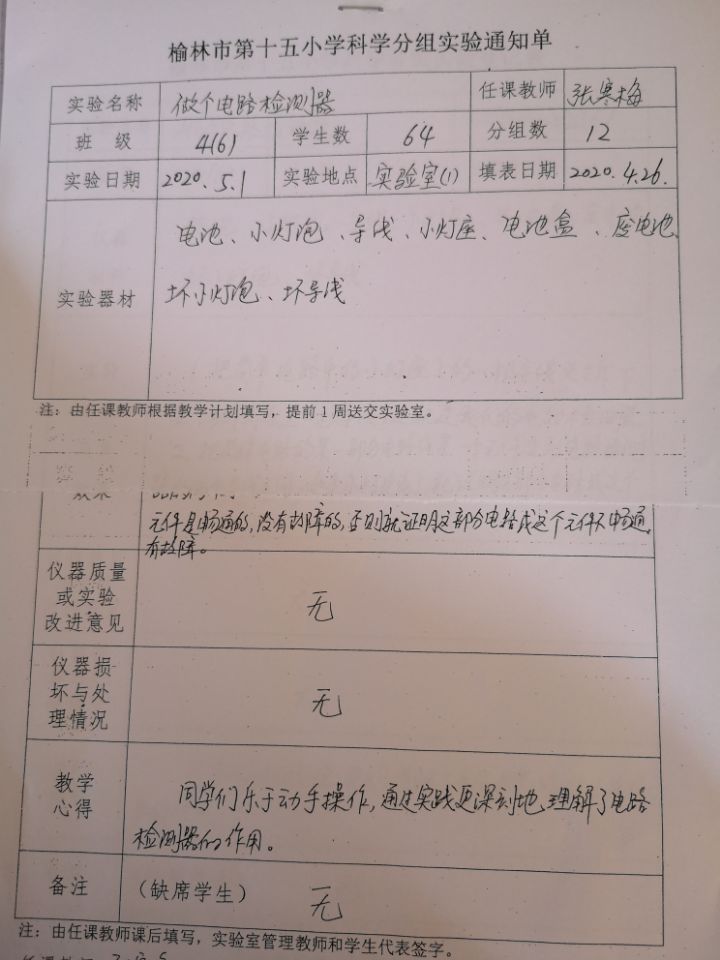 榆林市第十五小学科学分组实验通知单
实验名称 做个电路检测器 任课教师 张寒梅
班 级 4(6) 学生数 64 分组数 12
实验日期 2020.5.1 实验地点 实验室(1) 填表日期 2020.4.26.
电池、小灯泡、导线、小灯座、电池盒、废电池、
实验器材 坏小灯泡、坏导线
注：由任课教师根据教学计划填写，提前1周送交实验室。
效果
元件是畅通的,没有故障的,否则就证明这部分电路或这个元件不畅通,
有故障。
仪器质量
或实验
改进意见
无
仪器损
坏与处
理情况
无
教学
心得
同学们乐于动手操作,通过实践更深刻地理解了电路
检测器的作用。
备注 (缺席学生) 无
注：由任课教师课后填写，实验室管理教师和学生代表签字。